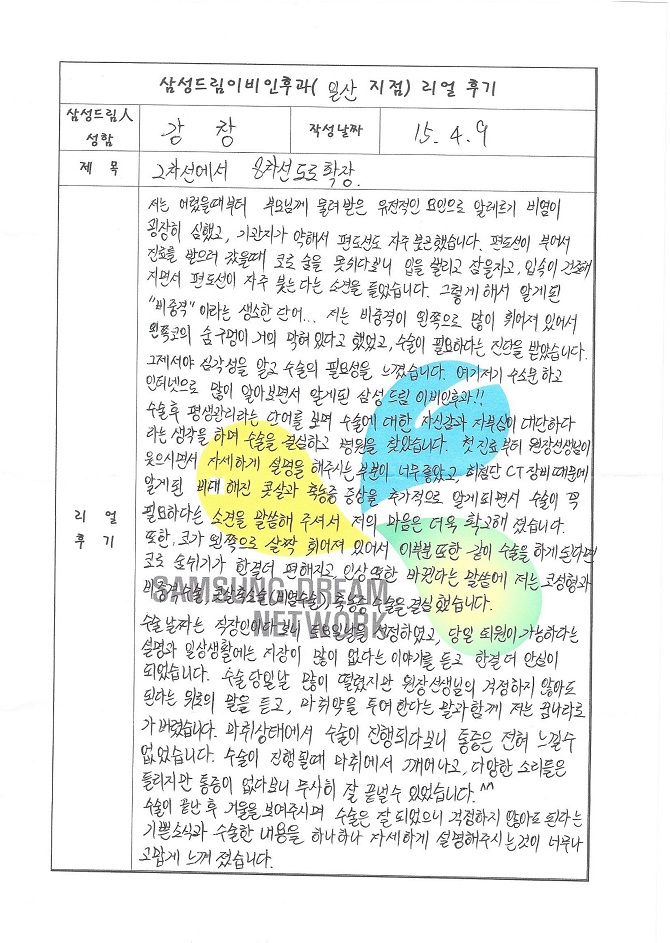 삼성드림이비인후과( 일산 지점) 리얼 후기
삼성드림人 성함
강 창
작성날짜
15. 4. 9
제 목
2차선에서 8차선 도로 확장.
리 얼
후 기
저는 어렸을때부터 부모님께 물려받은 유전적인 요인으로 알레르기 비염이
굉장히 심했고, 기관지가 약해서 편도선도 자주 붓곤했습니다. 편도선이 부어서
진료를 받으러 갔을때 코로 숨을 못쉬다보니 입을 벌리고 잠을자고, 입속이 건조해
지면서 편도선이 자주 붓는다는 소견을 들었습니다. 그렇게 해서 알게된
"비중격" 이라는 생소한 단어... 저는 비중격이 왼쪽으로 많이 휘어져 있어서
왼쪽코의 숨구멍이 거의 막혀 있다고 했었고, 수술이 필요하다는 진단을 받았습니다.
그제서야 심각성을 알고 수술의 필요성을 느꼈습니다. 여기저기 수소문 하고
인터넷으로 많이 알아보면서 알게된 삼성드림 이비인후과!!
수술후 평생관리라는 단어를 보며 수술에 대한 자신감과 자부심이 대단하다
라는 생각을 하며 수술을 결심하고 병원을 찾았습니다. 첫 진료부터 원장선생님이
웃으시면서 자세하게 설명을 해주시는 부분이 너무 좋았고, 최첨단 CT 장비 때문에
알게된 비대 해진 콧살과 축농증 증상을 추가적으로 알게되면서 수술이 꼭
필요하다는 소견을 말씀해 주셔서 저의 마음은 더욱 확고해 졌습니다.
또한, 코가 왼쪽으로 살짝 휘어져 있어서 이부분 또한 같이 수술을 하게된다면
코로 숨쉬기가 한결더 편해지고 인상 또한 바뀐다는 말씀에 저는 코성형과
비중격수술, 콧살축소술(비염수술), 축농증 수술을 결심했습니다.
SAMSUNG DREAM
NETWORK
수술 날짜는 직장인이다보니 토요일날을 선정하였고, 당일 퇴원이 가능하다는
설명과 일상생활에는 지장이 많이 없다는 이야기를 듣고 한결 더 안심이
되었습니다. 수술 당일날 많이 떨렸지만 원장선생님의 걱정하지 않아도
된다는 위로의 말을 듣고, 마취약을 투여한다는 말과함께 저는 꿈나라로
가버렸습니다. 마취상태에서 수술이 진행되다보니 통증은 전혀 느낄수
없었습니다. 수술이 진행될때 마취에서 깨어나고, 다양한 소리들은
들리지만 통증이 없다보니 무사히 잘 끝낼수 있었습니다.^^
수술이 끝난 후 거울을 보여주시며 수술은 잘 되었으니 걱정하지 않아도 된다는
기쁜소식과 수술한 내용을 하나하나 자세하게 설명해주시는것이 너무나
고맙게 느껴 졌습니다.